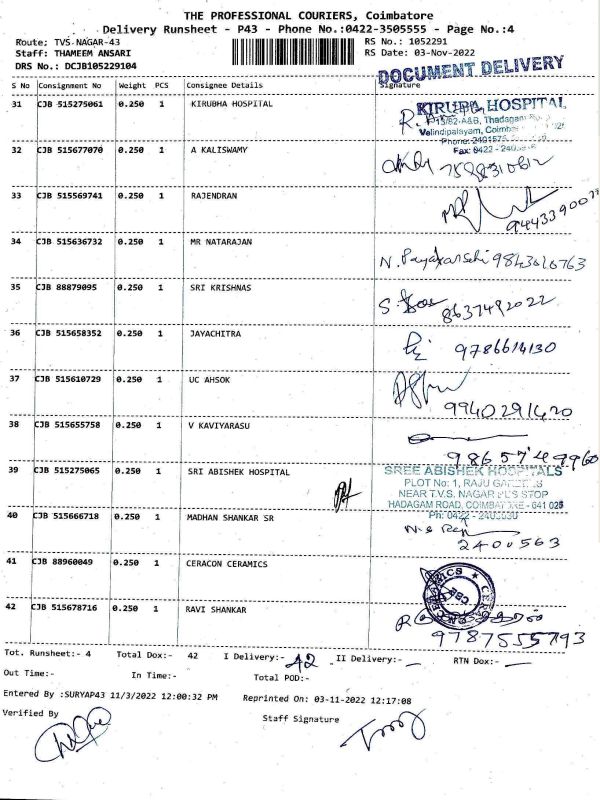 THE PROFESSIONAL COURIERS, Coimbatore
Delivery Runsheet - P43 - Phone No.:0422-3505555 - Page No.:4
Route: TVS-NAGAR-43 RS No.: 1052291
Staff: THAMEEM ANSARI RS Date: 03-Nov-2022
DRS No.: DCJB105229104
DOCUMENT DELIVERY
S No Consignment No Weight PCS Consignee Details Signature
31 CJB 515275061 0.250 1 KIRUBHA HOSPITAL
KIRUBA HOSPITAL
Thadagam
Velindipalayam, Coimb
Phone: 2401575
Fax: 0422 -
32 CJB 515677070 0.250 1 A KALISWAMY
33 CJB 515569741 0.250 1 RAJENDRAN
34 CJB 515636732 0.250 1 MR NATARAJAN
35 CJB 88879095 0.250 1 SRI KRISHNAS
8637492022
36 CJB 515658352 0.250 1 JAYACHITRA
9786614130
37 CJB 515610729 0.250 1 UC AHSOK
9940291420
38 CJB 515655758 0.250 1 V KAVIYARASU
9865749960
39 CJB 515275065 0.250 1 SRI ABISHEK HOSPITAL
SREE ABISHEK HOSPITALS
PLOT No: 1, RAJU
NEAR T.V.S. NAGAR BUS STOP
HADAGAM ROAD, COIMBATORE - 641 025
40 CJB 515666718 0.250 1 MADHAN SHANKAR SR
2400563
41 CJB 88960049 0.250 1 CERACON CERAMICS
42 CJB 515678716 0.250 1 RAVI SHANKAR
9787555793
Tot. Runsheet:- 4 Total Dox:- 42 I Delivery:- 42 II Delivery:- RTN Dox:-
Out Time:- In Time:- Total POD:-
Entered By :SURYAP43 11/3/2022 12:00:32 PM Reprinted On: 03-11-2022 12:17:08
Verified By Staff Signature